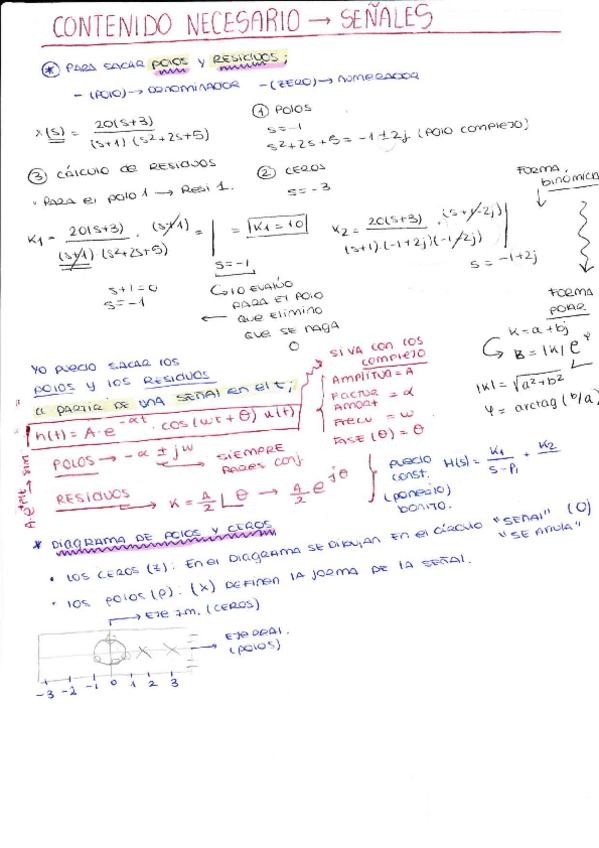 CONTENIDO NECESARIO → SEÑALES
* PARA SACAR POLOS Y RESIDUOS;
- (POLO) → DENOMINADOR - (ZERO) → NUMERADOR
X(S) = 20(S+3) / (S+1)(S²+2S+5)
① POLOS
S=-1
S²+2S+5 = -1±2j (POLO COMPLEJO)
② CEROS
S=-3
③ CÁLCULO DE RESIDUOS
· PARA EL POLO 1 → RESI 1.
K1 = 20(S+3) / (S+1)(S²+2S+5) · (S+1) = | S=-1 = K1=10
S+1=0
S=-1
LO EVALÚO
PARA EL POLO
← QUE ELIMINO
QUE SE HAGA
0
K2 = 20(S+3) / (S+1)·(-1+2j)(-1/2j) · (S+1-2j) | S=-1+2j
FORMA BINÓMICA
FORMA POLAR
K=a+bj
B=|K|e^φ
|K|=√a²+b²
φ = arctag(b/a)
YO PUEDO SACAR LOS
POLOS Y LOS RESIDUOS
A PARTIR DE UNA SEÑAL EN EL t;
h(t) = A·e^-αt · cos(ωt+θ) u(t)
SI VA CON LOS
COMPLEJO
AMPLITUD = A
FACTOR AMORT = α
FRECU = ω
FASE (θ) = θ
POLOS → -α ± jω
← SIEMPRE
PARES CONJ.
RESIDUOS → K = A/2 ∠θ → A/2 e^jθ
PUEDO
CONST.
(PONERLO)
BONITO.
H(S) = K1/S-P1 + K2
* DIAGRAMA DE POLOS Y CEROS
• LOS CEROS (Z): EN EL DIAGRAMA SE DIBUJAN EN EL CÍRCULO "SEÑAL" (O)
"SE ANULA"
• LOS POLOS (P): (X) DEFINEN LA FORMA DE LA SEÑAL.
→ EJE IM. (CEROS)
→ EJE REAL.
(POLOS)
-3 -2 -1 0 1 2 3